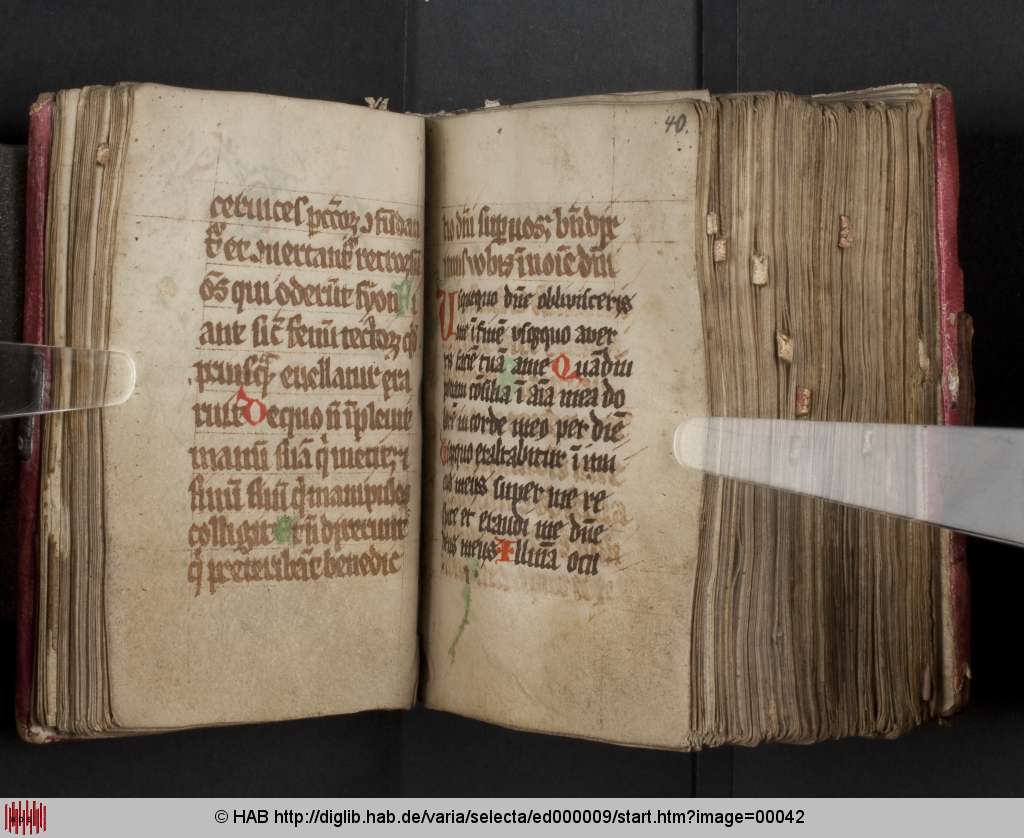 ceruices pctōꝝ ↄfūdan
tr̄ et ↄuertant̄ retrorsū
ōs qui oderūt syon
ant sic̄ fenū tectoꝝ qd̄
priusq̄ȝ euellatur exa
ruit De quo nō īpleuit
manū suā q̄ metit; ⁊
sinū suū q̄ manipulos
colligit Et nō dixerunt
q̄ preteribāt benedic
tio dn̄i suꝑ uos; bn̄dix
imus vobis ī noīe dn̄i
Usquequo dn̄e obliuisceris
me ī finē usq̄quo auer
tis faciē tuā a me Quādiu
ponam cōsilia ī aīa mea do
lorē in corde meo per diē
Usq̄quo exaltabitur ī imi
cus meus super me re
spice et exaudi me dn̄e
deus meus Illuīa ocu
40.
© HAB http://diglib.hab.de/varia/selecta/ed000009/start.htm?image=00042